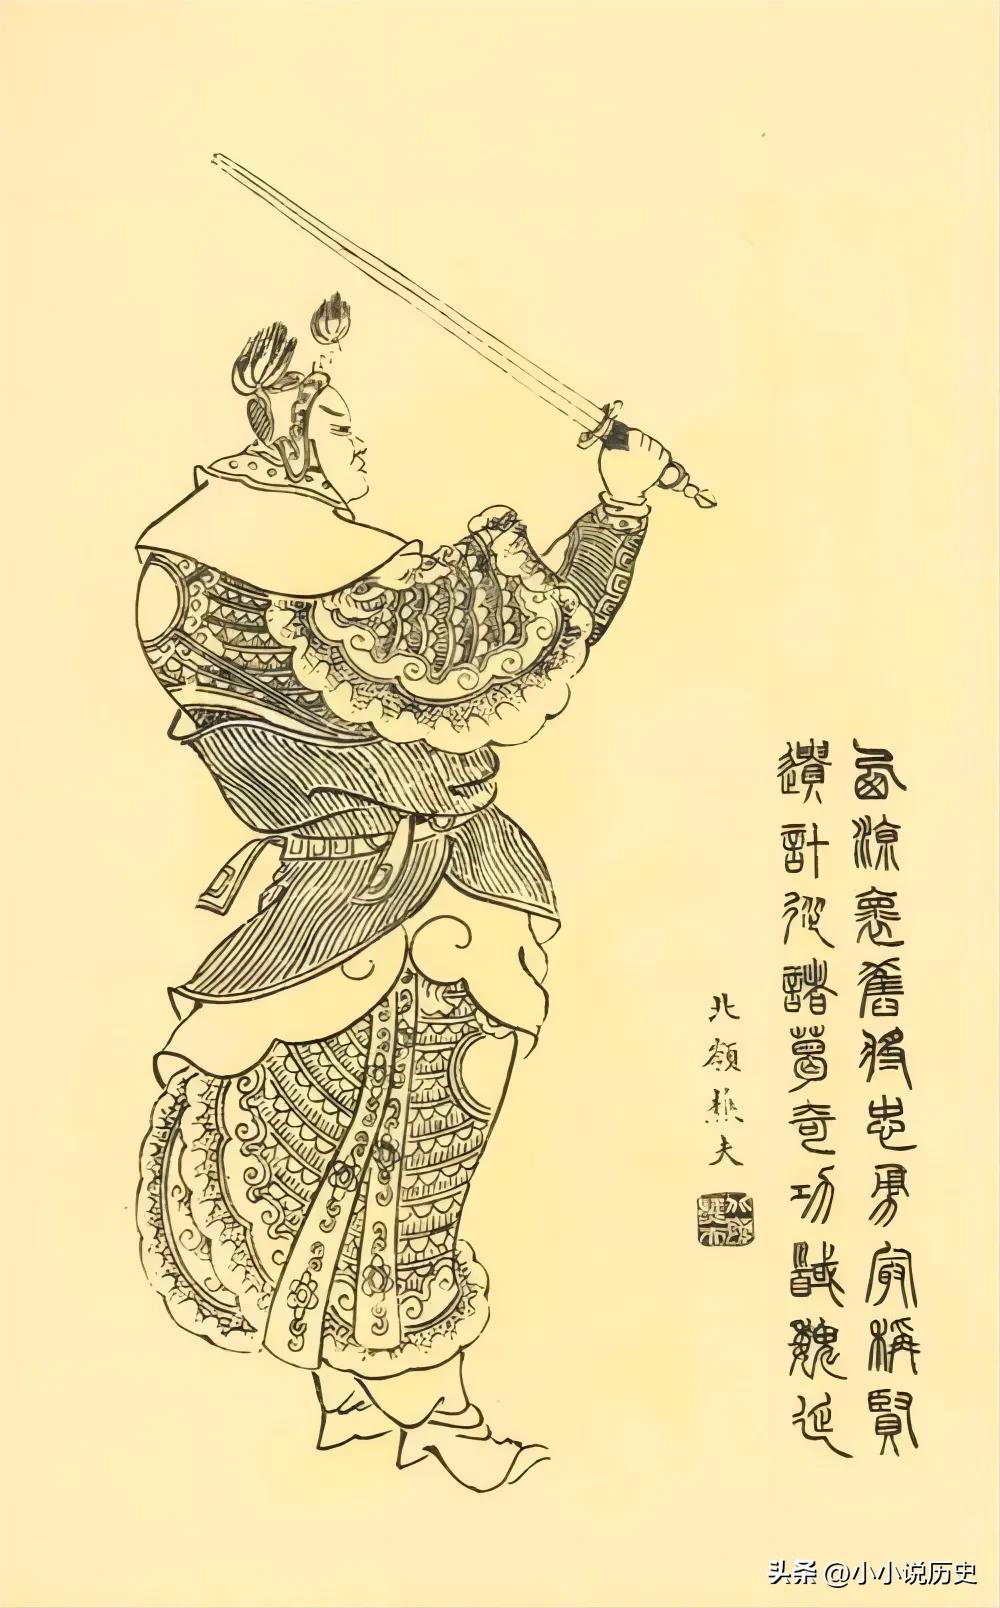 西涼褱舊將忠勇冣稱賢
遺計從諸葛奇功馘魏延
北嶺樵夫
头条 @小小说历史